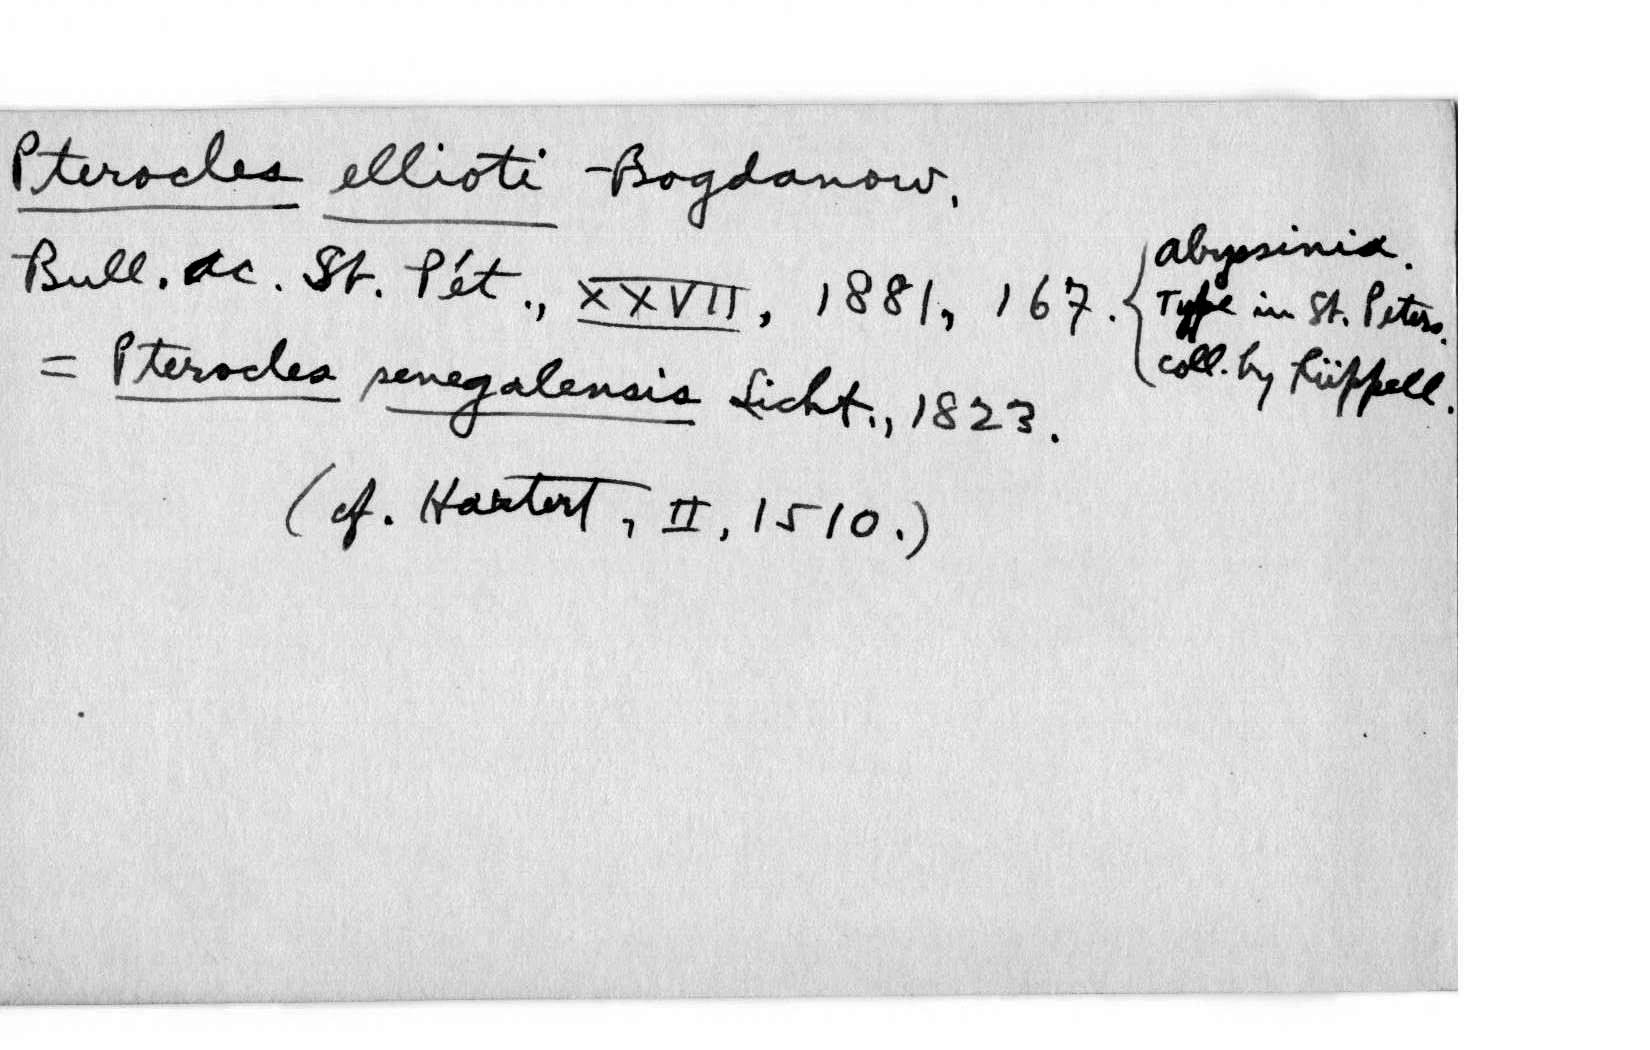 Pterocles ellioti Bogdanow.
Bull. Ac. St. Pét., XXVII, 1881, 167.
{ Abyssinia.
Type in St. Peters.
coll. by Rüppell.
= Pterocles senegalensis Licht., 1823.
(cf. Hartert, II, 1510.)